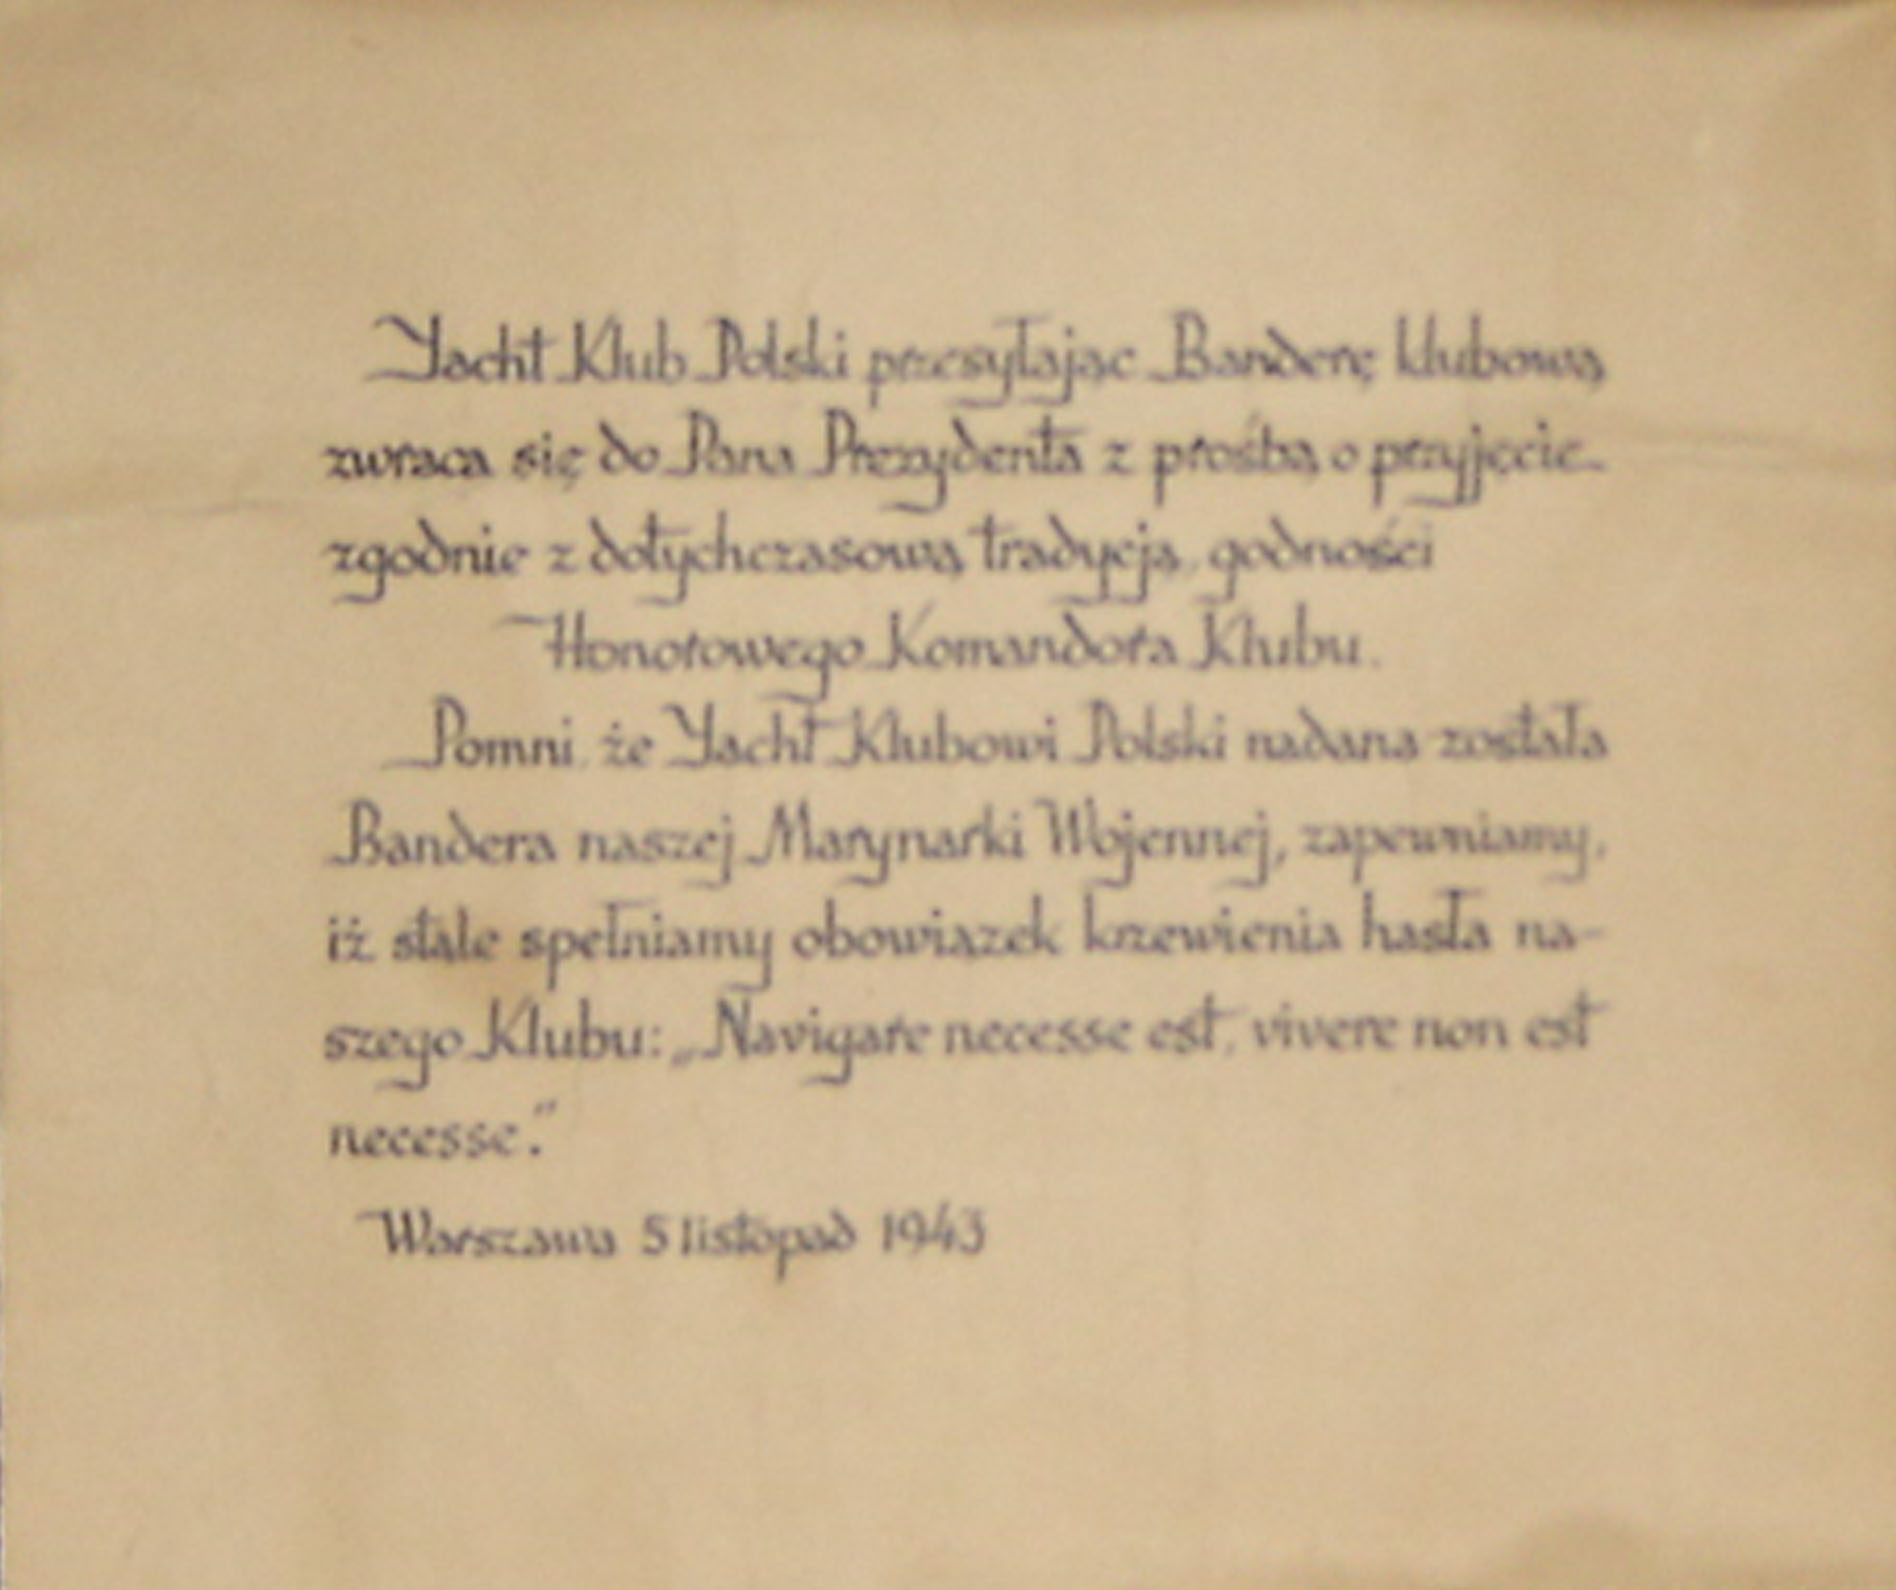 Yacht Klub Polski przesyłając Banderę klubową
zwraca się do Pana Prezydenta z prośbą o przyjęcie
zgodnie z dotychczasową tradycją, godności
Honorowego Komandora Klubu.
Pomni, że Yacht Klubowi Polski nadana została
Bandera naszej Marynarki Wojennej, zapewniamy,
iż stale spełniamy obowiązek krzewienia hasła na-
szego Klubu: „Navigare necesse est, vivere non est
necesse.”
Warszawa 5 listopad 1943